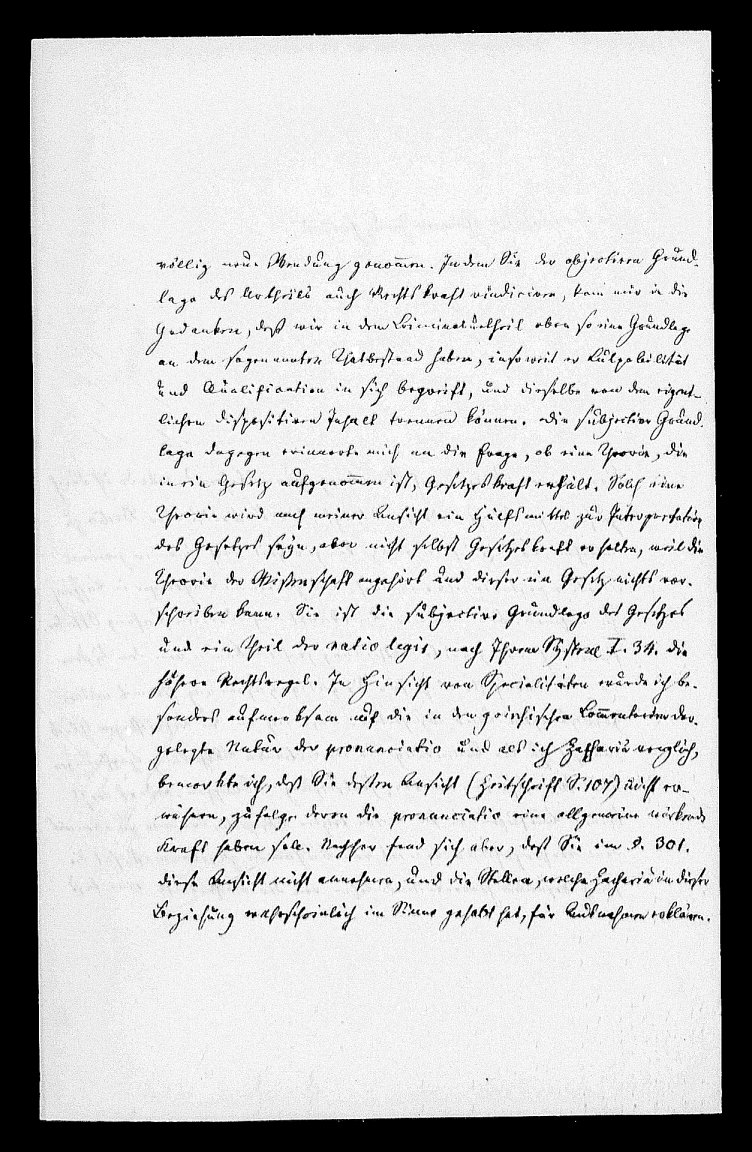 völlig neue Wendung genommen. Indem Sie der objectiven Grund-
lage des Urtheils auch Rechtskraft vindiciren, kam mir in die
Gedanken, daß wir in dem Criminalurtheil eben so eine Grundlage
an dem sogenannten Thatbestand haben, insoweit er Culpabilität
und Qualification in sich begreift, und dieselbe von dem eigent-
lichen dispositiven Inhalt trennen können. Die subjective Grund-
lage dagegen erinnerte mich an die Frage, ob eine Theorie, die
in ein Gesetz aufgenommen ist, Gesetzeskraft erhält. Solch eine
Theorie wird nach meiner Ansicht ein Hülfsmittel zur Interpretation
des Gesetzes seyn, aber nicht selbst Gesetzeskraft erhalten, weil die
Theorie der Wissenschaft angehört und dieser ein Gesetz nichts vor-
schreiben kann. Sie ist die subjective Grundlage des Gesetzes
und ein Theil der ratio legis, nach Ihrem System I. 34. die
höhere Rechtsregel. In Hinsicht von Specialitäten wurde ich be-
sonders aufmerksam auf die in den gaischischen Commentarien dar-
gelegte Natur der pronunciatio und als ich Zachariä verglich,
bemerkte ich, daß Sie dessen Ansicht (Zeitschrift S. 107) nicht er-
wähnen, zufolge deren die pronunciatio eine allgemeine wirkende
Kraft haben soll. Nachher fand sich aber, daß Sie im §. 301.
diese Ansicht nicht annehmen, und die Stellen, welche Zachariä in dieser
Beziehung wahrscheinlich im Sinne gehabt hat, für Ausnahmen erklären.